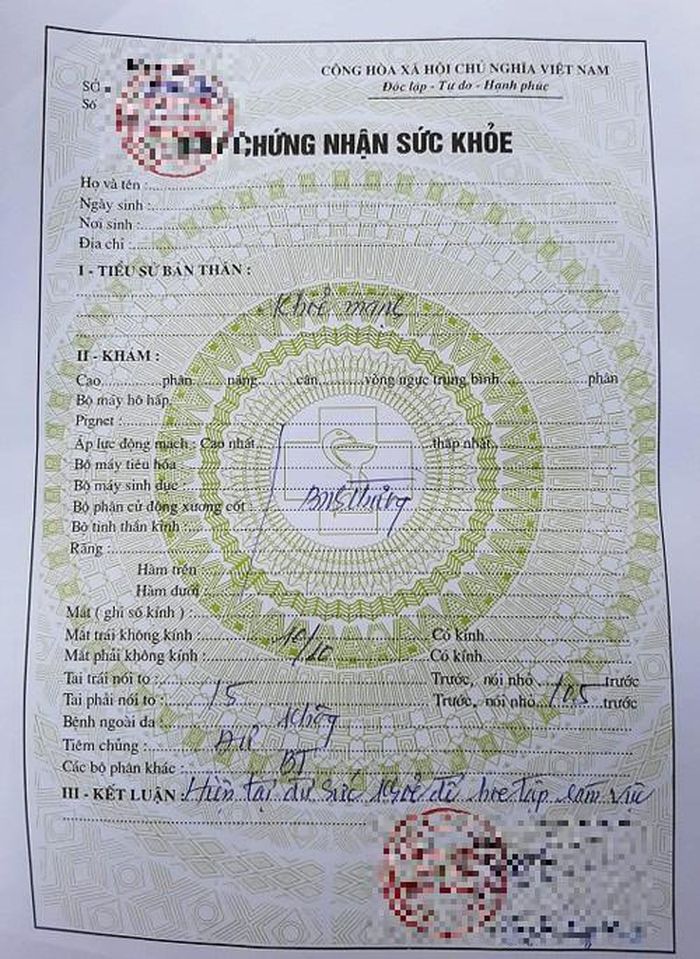 CỘNG HÒA XÃ HỘI CHỦ NGHĨA VIỆT NAM
Độc lập - Tự do - Hạnh phúc
SỞ
Số
CHỨNG NHẬN SỨC KHỎE
Họ và tên :
Ngày sinh :
Nơi sinh :
Địa chỉ :
I - TIỂU SỬ BẢN THÂN :
Khoẻ mạnh
II - KHÁM :
Cao phân nặng cân vòng ngực trung bình phân
Bộ máy hô hấp
Pignet :
Áp lực động mạch : Cao nhất thấp nhất
Bộ máy tiêu hóa :
Bộ máy sinh dục :
Bộ phận cử động xương cốt :
Bình thường
Bộ tinh thần kinh :
Răng :
Hàm trên :
Hàm dưới :
Mắt ( ghi số kính ) :
Mắt trái không kính : 10/10 Có kính
Mắt phải không kính : Có kính
Tai trái nói to : Trước, nói nhỏ trước
Tai phải nói to : 15 Trước, nói nhỏ 10,5 trước
Bệnh ngoài da : không
Tiêm chủng : Đủ
Các bộ phận khác : BT
III - KẾT LUẬN : Hiện tại đủ sức khoẻ để học tập làm việc